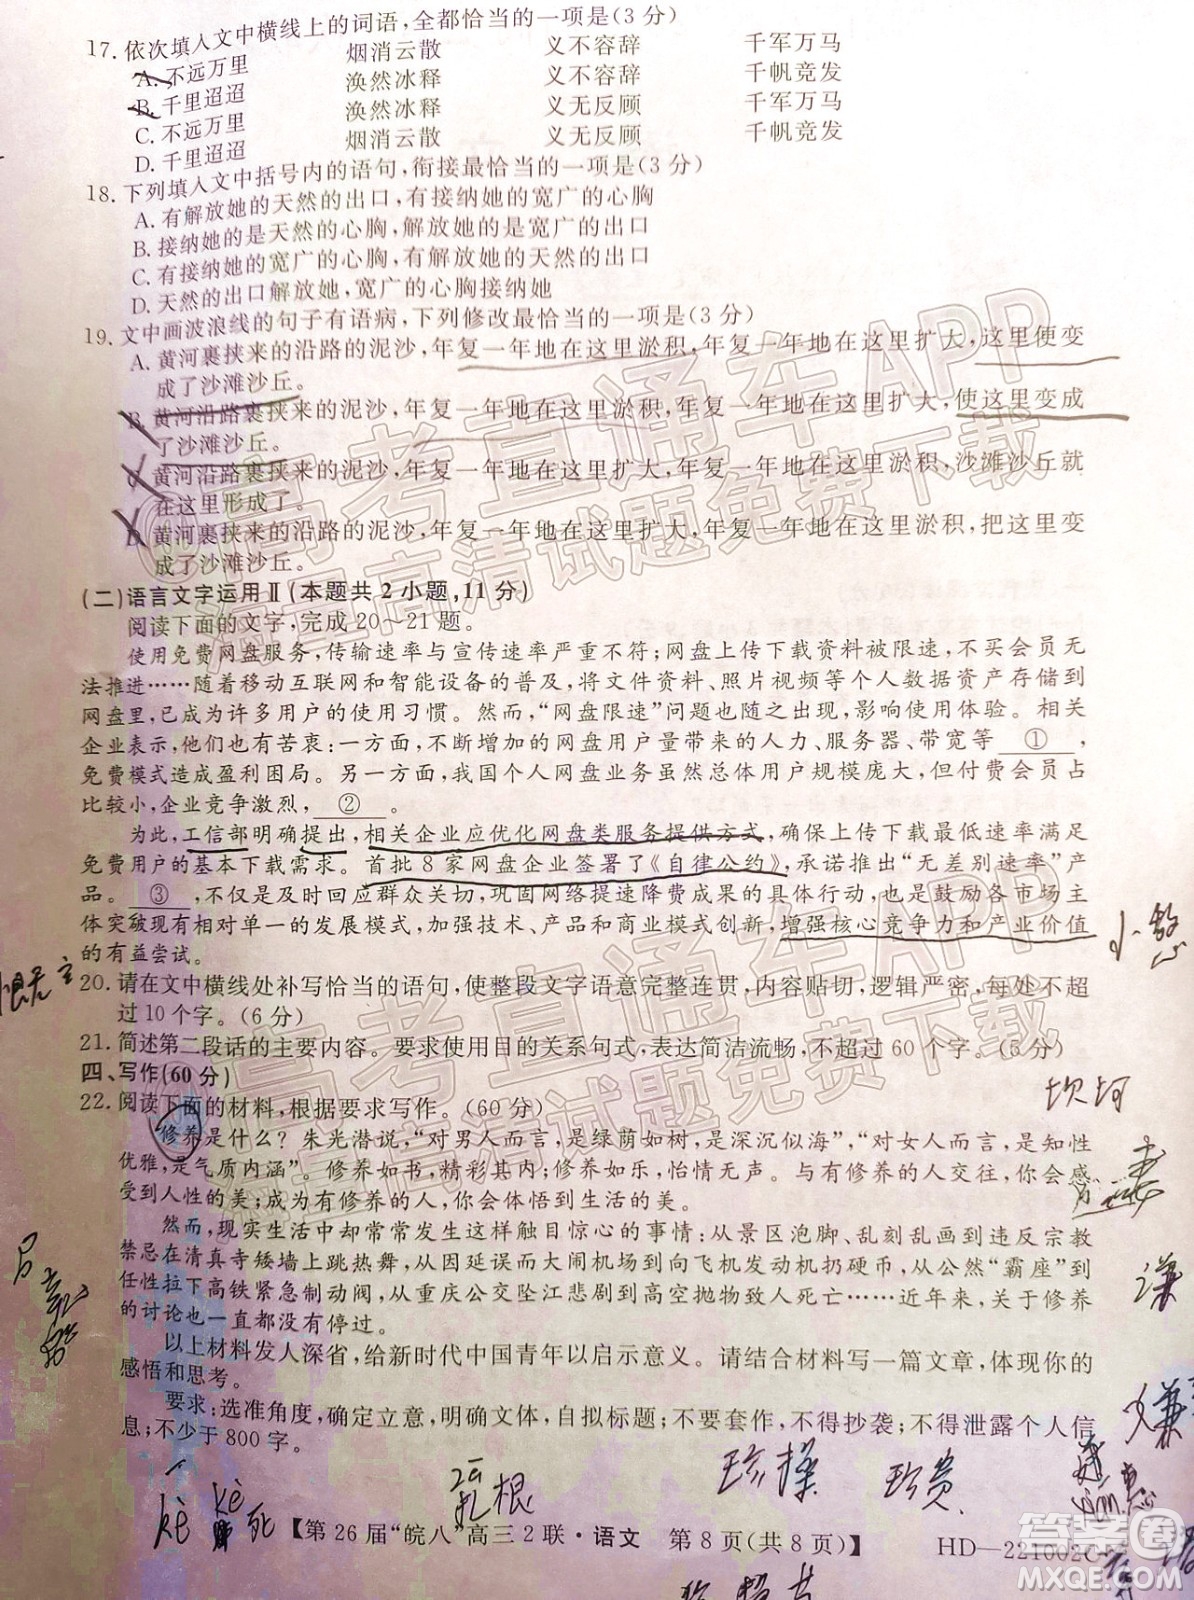 17. 依次填入文中横线上的词语,全都恰当的一项是(3分)
A. 不远万里 烟消云散 义不容辞 千军万马
B. 千里迢迢 涣然冰释 义不容辞 千帆竞发
C. 不远万里 涣然冰释 义无反顾 千军万马
D. 千里迢迢 烟消云散 义无反顾 千帆竞发
18. 下列填入文中括号内的语句,衔接最恰当的一项是(3分)
A. 有解放她的天然的出口,有接纳她的宽广的心胸
B. 接纳她的是天然的心胸,解放她的是宽广的出口
C. 有接纳她的宽广的心胸,有解放她的天然的出口
D. 天然的出口解放她,宽广的心胸接纳她
19. 文中画波浪线的句子有语病,下列修改最恰当的一项是(3分)
A. 黄河裹挟来的沿路的泥沙,年复一年地在这里淤积,年复一年地在这里扩大,这里便变
成了沙滩沙丘。
B. 黄河沿路裹挟来的泥沙,年复一年地在这里淤积,年复一年地在这里扩大,使这里变成
了沙滩沙丘。
C. 黄河沿路裹挟来的泥沙,年复一年地在这里扩大,年复一年地在这里淤积,沙滩沙丘就
在这里形成了。
D. 黄河裹挟来的沿路的泥沙,年复一年地在这里扩大,年复一年地在这里淤积,把这里变
成了沙滩沙丘。
(二)语言文字运用Ⅱ(本题共2小题,11分)
阅读下面的文字,完成20~21题。
使用免费网盘服务,传输速率与宣传速率严重不符;网盘上下载资料被限速,不买会员无
法推进……随着移动互联网和智能设备的普及,将文件资料、照片视频等个人数据资产存储到
网盘里,已成为许多用户的使用习惯。然而,“网盘限速”问题也随之出现,影响使用体验。相关
企业表示,他们也有苦衷:一方面,不断增加的网盘用户量带来的人力、服务器、带宽等 ① ,
免费模式造成盈利困局。另一方面,我国个人网盘业务虽然总体用户规模庞大,但付费会员占
比较小,企业竞争激烈, ② 。
为此,工信部明确提出,相关企业应优化网盘类服务提供方式,确保上传下载最低速率满足
免费用户的基本下载需求。首批8家网盘企业签署了《自律公约》,承诺推出“无差别速率”产
品。 ③ ,不仅是及时回应群众关切,巩固网络提速降费成果的具体行动,也是鼓励各市场主
体突破现有相对单一的发展模式,加强技术、产品和商业模式创新,增强核心竞争力和产业价值
的有益尝试。
20. 请在文中横线处补写恰当的语句,使整段文字语意完整连贯,内容贴切,逻辑严密,每处不超
过10个字。(6分)
21. 简述第二段话的主要内容。要求使用目的关系句式,表达简洁流畅,不超过60个字。(5分)
四、写作(60分)
22. 阅读下面的材料,根据要求写作。(60分)
修养是什么?朱光潜说,“对男人而言,是绿荫如树,是深沉似海”,“对女人而言,是知性
优雅,是气质内涵”。修养如书,精彩纷呈;修养如乐,怡情无声。与有修养的人交往,你会感
受到人性的美;成为有修养的人,你会体悟到生活的美。
然而,现实生活中却常常发生这样触目惊心的事情:从景区泡脚、乱刻乱画到违反宗教
禁忌在清真寺矮墙上跳热舞,从因延误而大闹机场到向飞机发动机抛硬币,从公然“霸座”到
任性拉下高铁紧急制动阀,从重庆公交坠江悲剧到高空抛物致人死亡……近年来,关于修养
的讨论也一直都没有停过。
以上材料发人深省,给新时代中国青年以启示意义。请结合材料写一篇文章,体现你的
感悟和思考。
要求:选准角度,确定立意,明确文体,自拟标题;不要套作,不得抄袭;不得泄露个人信
息;不少于800字。
【第26届“皖八”高三2联·语文 第8页(共8页)】 HD—221002C
坎坷
扎根
珍贵
kè
kè
死
高考直通车APP
海量高清试题免费下载
高考直通车APP
海量高清试题免费下载
答案圈
MXQE.COM